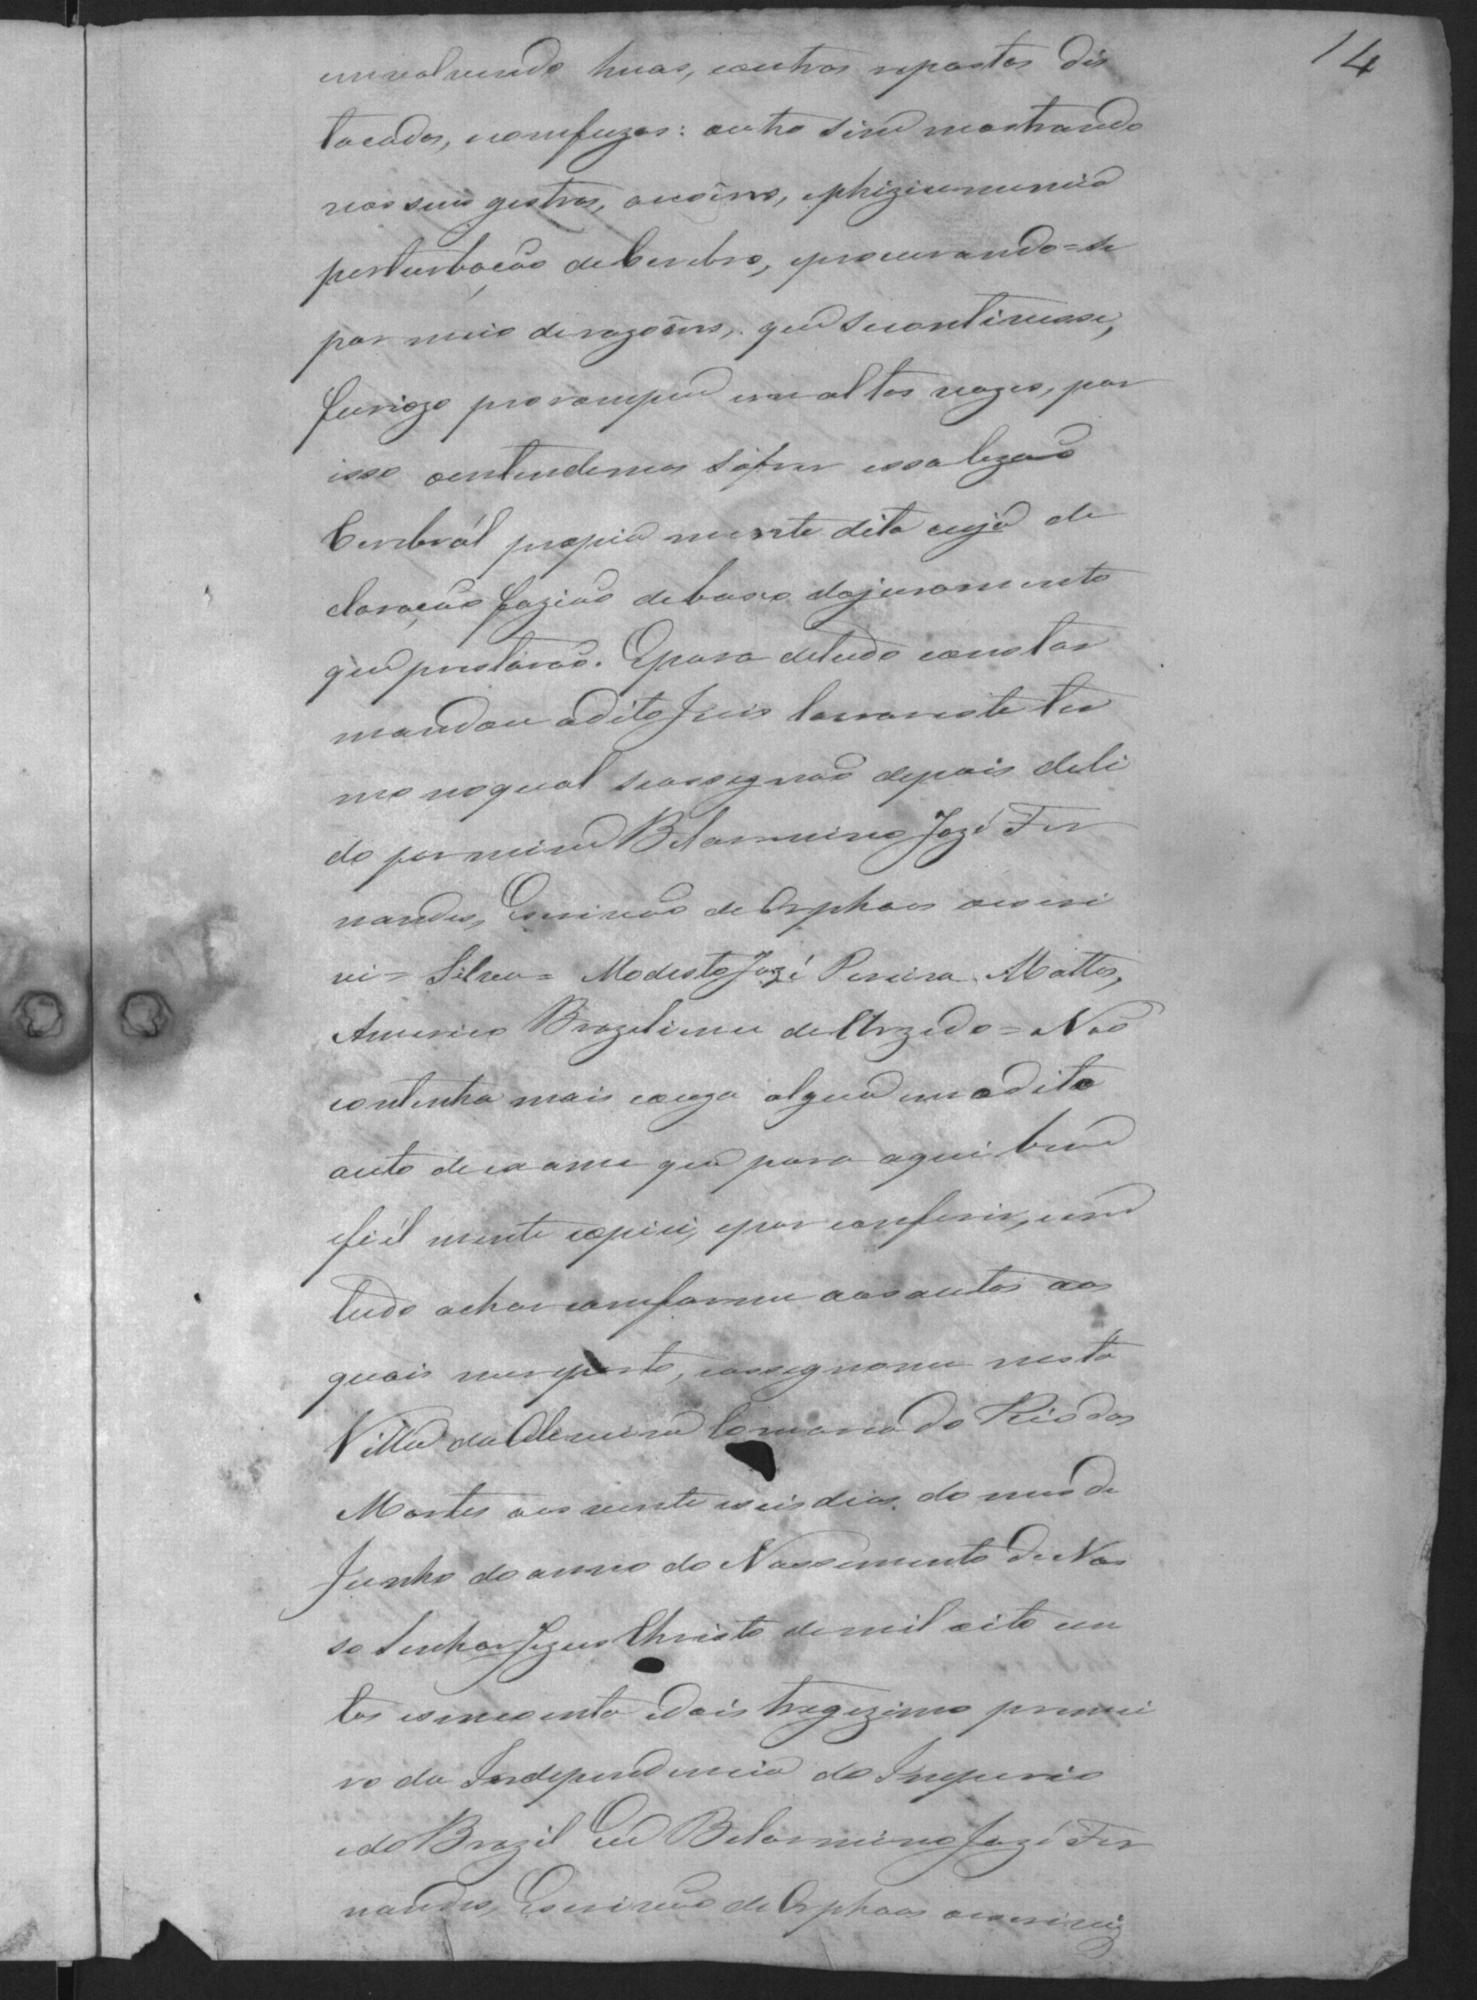 14
envolvendo huas, e outras repostas dis
locadas, e comfuzas: outro sim mostrando
nos seus gestos, acoins, ephizionumia
perturbação de Cerebro, eprocurando=se
por meio de razoins, que se contivesse,
furiozo prorompeu em altas vozes, por
isso oentendemos sofrer essa lezão
Cerebrál propia mente dita cuja de
claração fazião debaxo dojuramento
que prestarão. Epara detudo constar
mandou odito Juis lavrar este ter
mo noqual seassegnão depois deli
do por mim Belarmino Jozé Fer
nandes, Escrivão de Orphaos oescri
vi= Silva= Modesto Jozé Pereira Mattos,
Americo Brazilienu de Azedo= Não
continha mais couza algua em o dito
auto de exame que para aqui bem
efiél mente copiei, epor conferir, eem
tudo achar comforme aos autos aos
quais mereporto, eassegnome nesta
Villa da Comarca do Rio das
Mortes aos vente eseis dias do mes de
Junho do anno do Nassemento de Nos
so Senhor Jezus Christo de mil oito cen
tos ecincoenta edois tregezimo premei
ro da Independencia do Imperio
edo Brazil Eu Belarmino Jozé Fer
nandes, Escrivão de Orphaos oescrivi